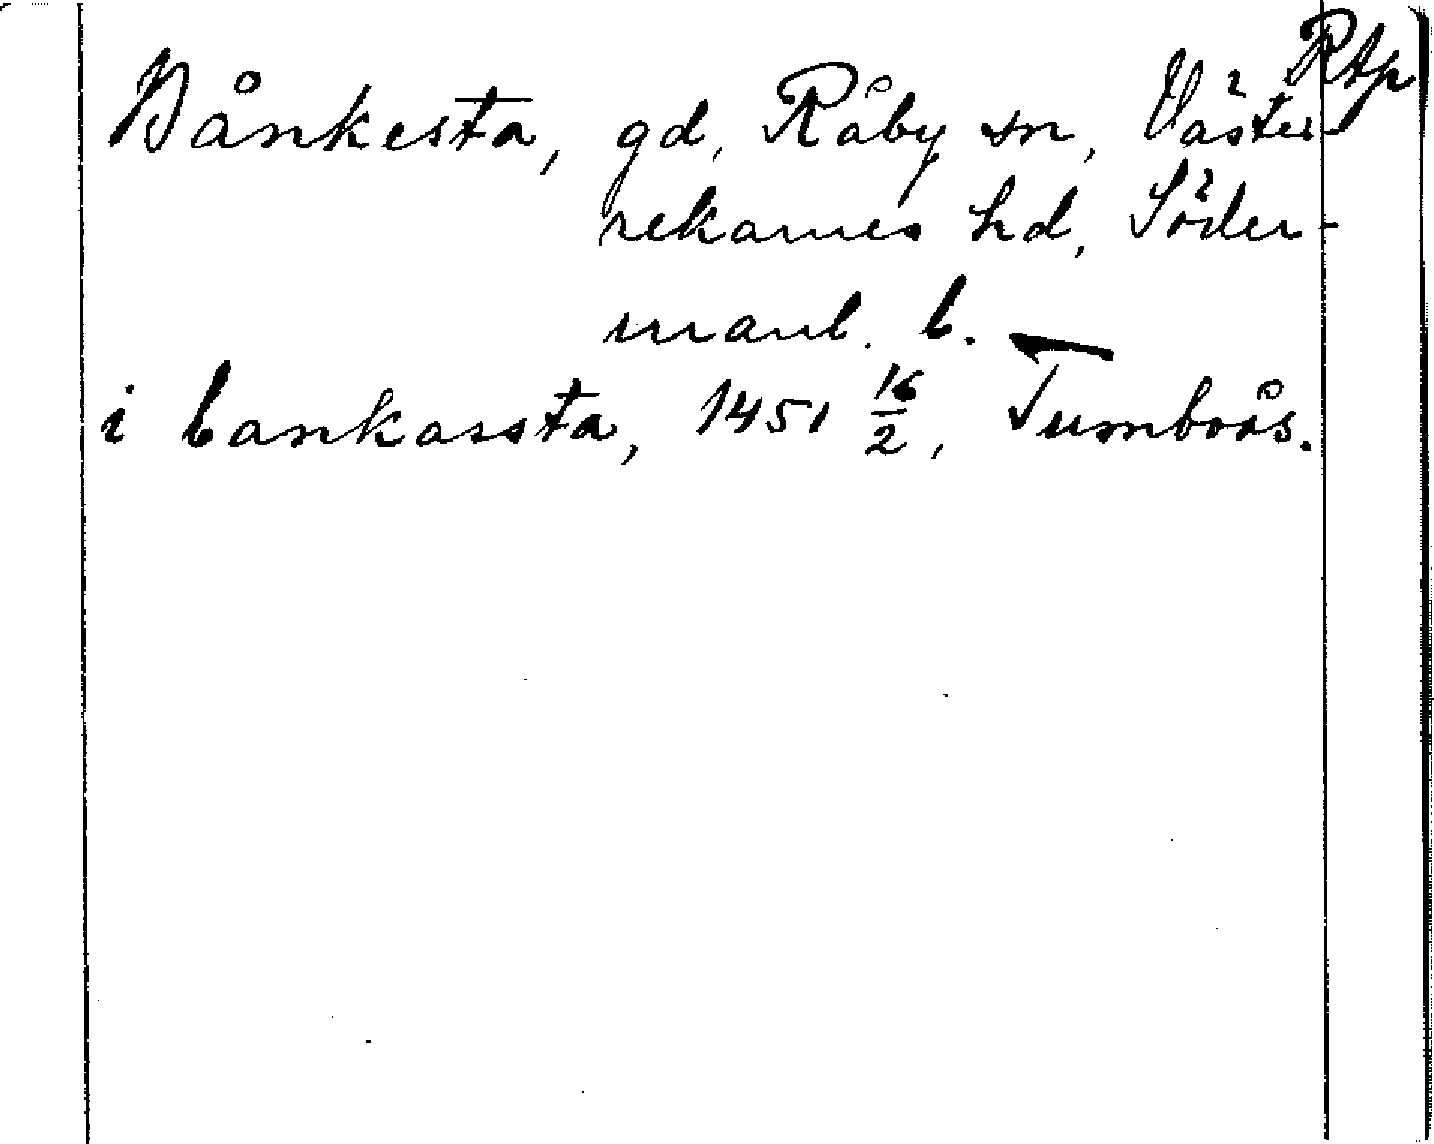 Rtp
Bånkesta, gd, Råby sn, Väster-
rekarnes hd, Söder-
manl. l. —
i bankassta, 1451 16/2, Tumboås.